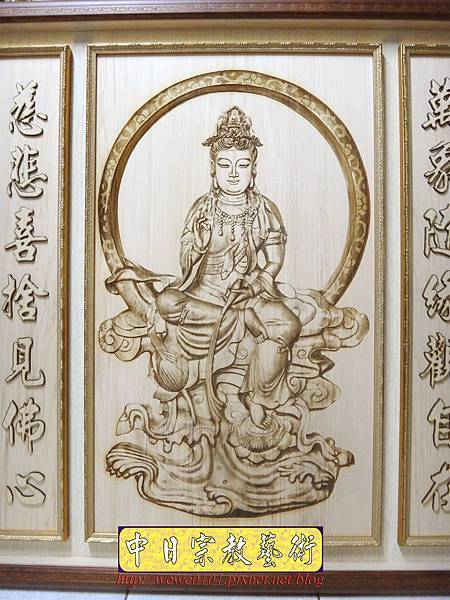 萬象隨緣觀自在
慈悲喜捨見佛心
中日宗教藝術
http://wewe0101.pixnet.net/blog